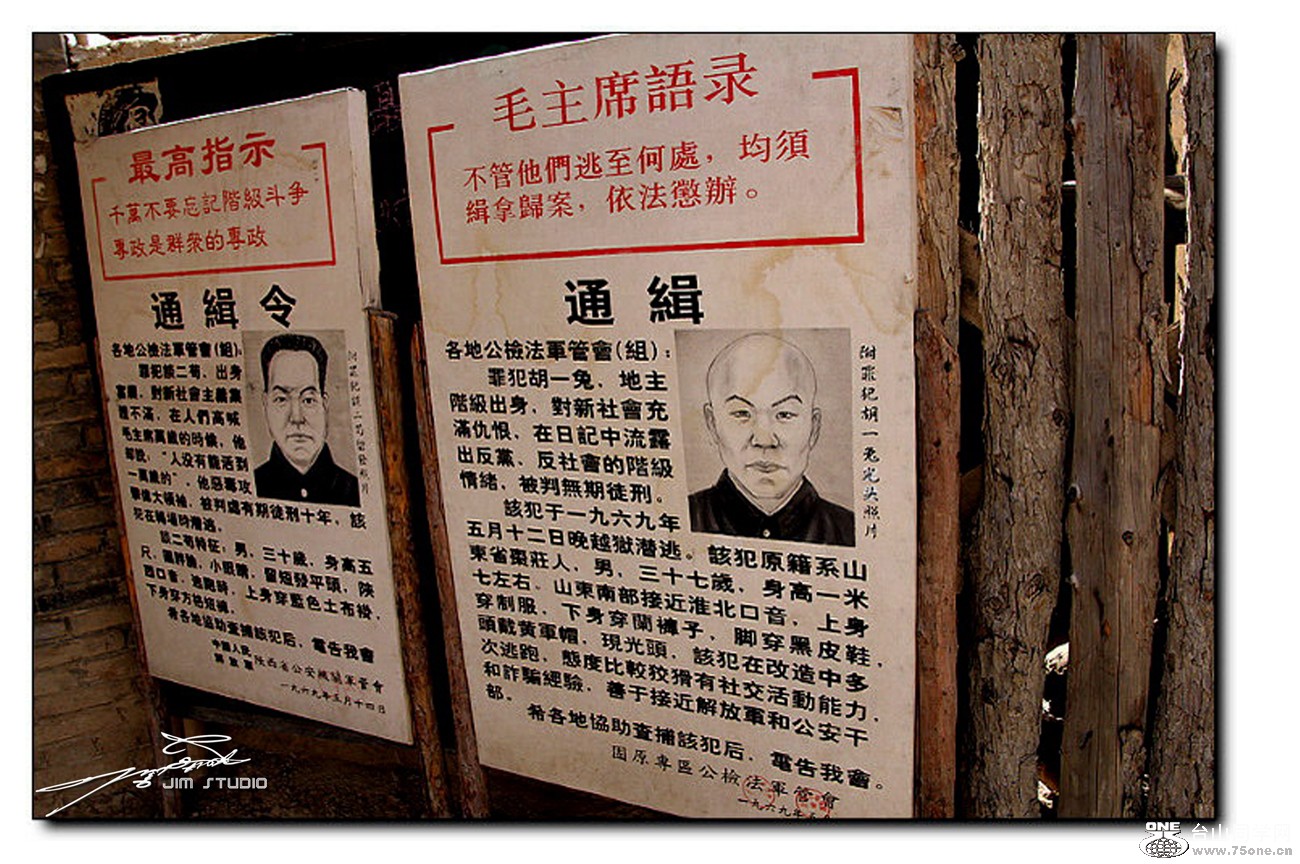 最高指示
千萬不要忘記階級斗争
專政是群衆的專政
通緝令
各地公檢法軍管會(組):
罪犯談二苟、出身
富農、對新社會主義集
體不滿，在人們高喊
毛主席萬歲的時候，他
却說："人没有能活到
一萬歲的"，他惡毒攻
擊偉大領袖，被判處有期徒刑十年，該
犯在轉場時潛逃。
談二苟特征：男，三十歲，身高五
尺，圓胖臉，小眼睛，留短發平頭，陝
西口音，逃跑時，上身穿藍色土布褂，
下身穿方格短褲。
希各地協助查捕該犯后，電告我會
中國人民
解放軍 陝西省公安機關軍管會
一九六九年五月十四日
附罪犯談二苟留發照片
毛主席語录
不管他們逃至何處，均須
緝拿歸案，依法懲辦。
通緝
各地公檢法軍管會(組)：
罪犯胡一兔、地主
階級出身，對新社會充
滿仇恨，在日記中流露
出反黨、反社會的階級
情緒，被判無期徒刑。
該犯于一九六九年
五月十二日晚越獄潛逃。該犯原籍系山
東省棗莊人，男，三十七歲，身高一米
七左右，山東南部接近淮北口音，上身
穿制服，下身穿蘭褲子，脚穿黑皮鞋，
頭戴黄軍帽，現光頭，該犯在改造中多
次逃跑，態度比較狡猾有社交活動能力，
和詐騙經驗，善于接近解放軍和公安干
部。
希各地協助查捕該犯后，電告我會。
固原專區公檢法軍管會
一九六九年五
附罪犯胡一兔光头照片
JIM STUDIO
ONE
台山
www.75one.cn